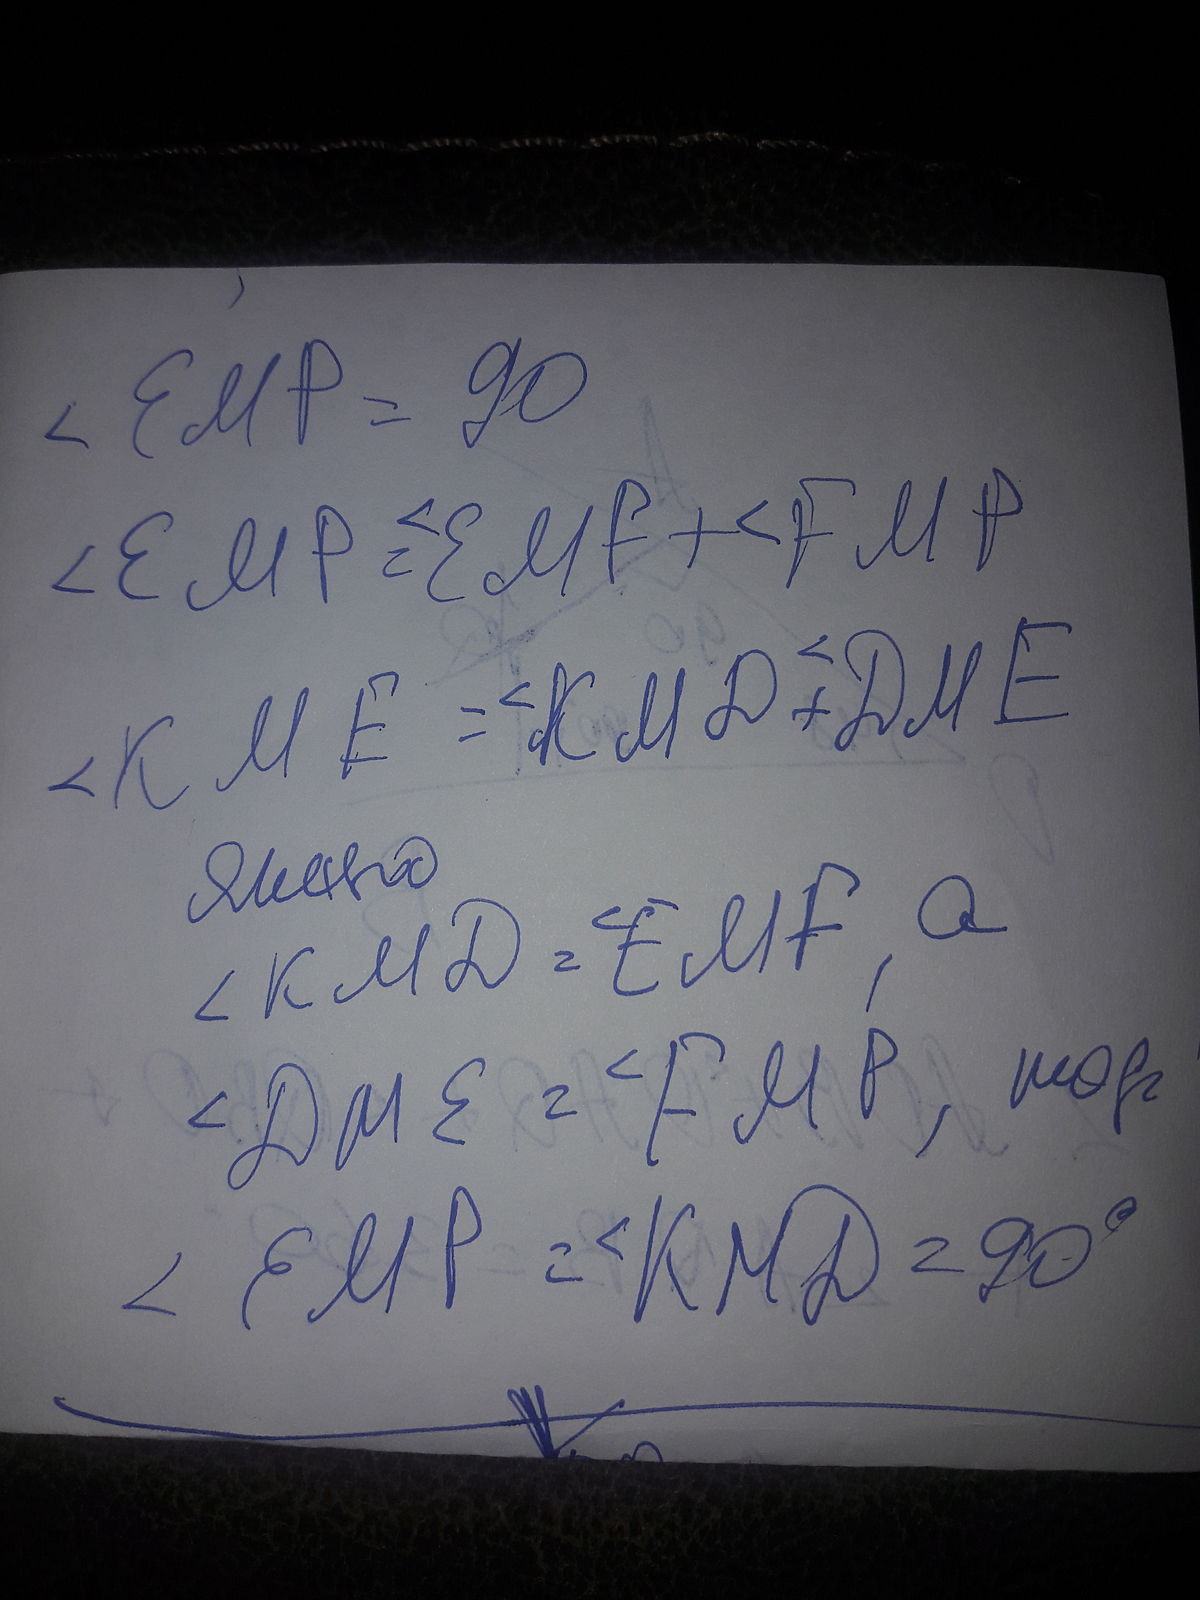 <EMP = 90
<EMP = <EMF + <FMP
<KME = <KMD + <DME
Якщо
<KMD = <EMF, а
<DME = <FMP, тоді
<EMP = <KMD = 90°